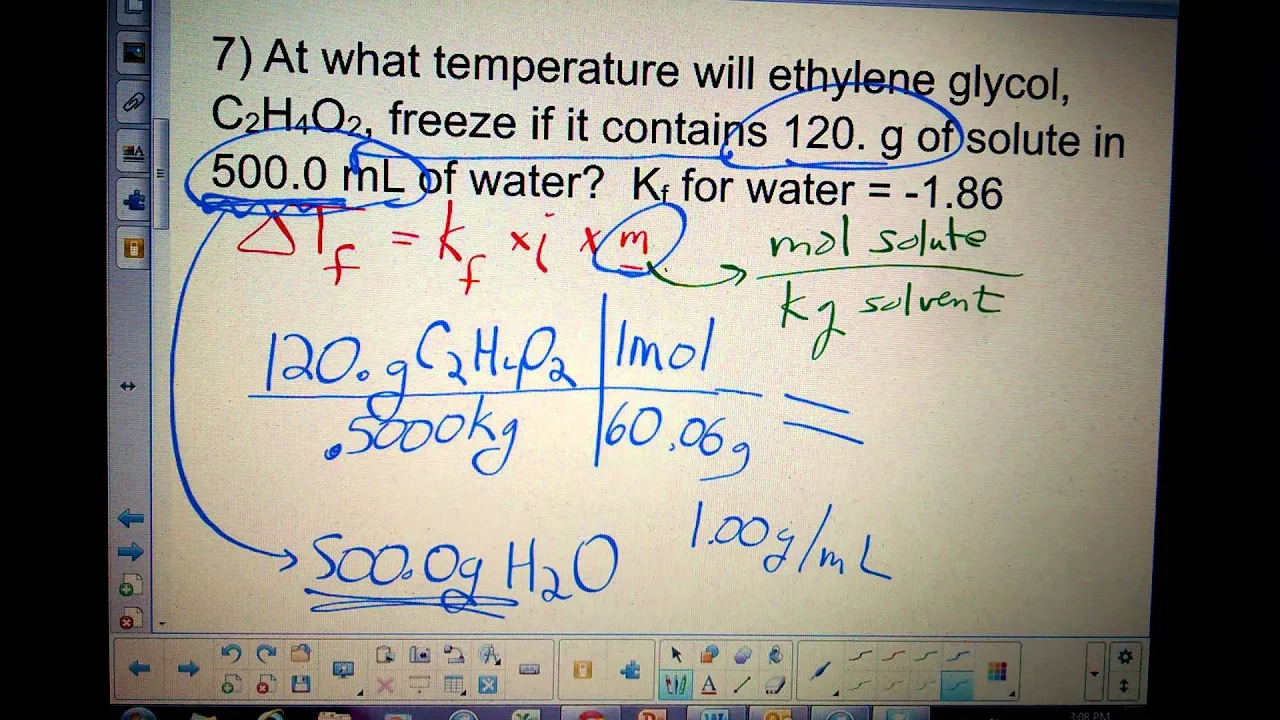 7) At what temperature will ethylene glycol,
C₂H₄O₂, freeze if it contains 120. g of solute in
500.0 mL of water? Kf for water = -1.86
ΔTf = kf × i × m
mol solute
kg solvent
120. g C₂H₄O₂ | 1 mol
.5000 kg | 60.06 g =
500.0g H₂O
1.00 g/mL
3:08 PM